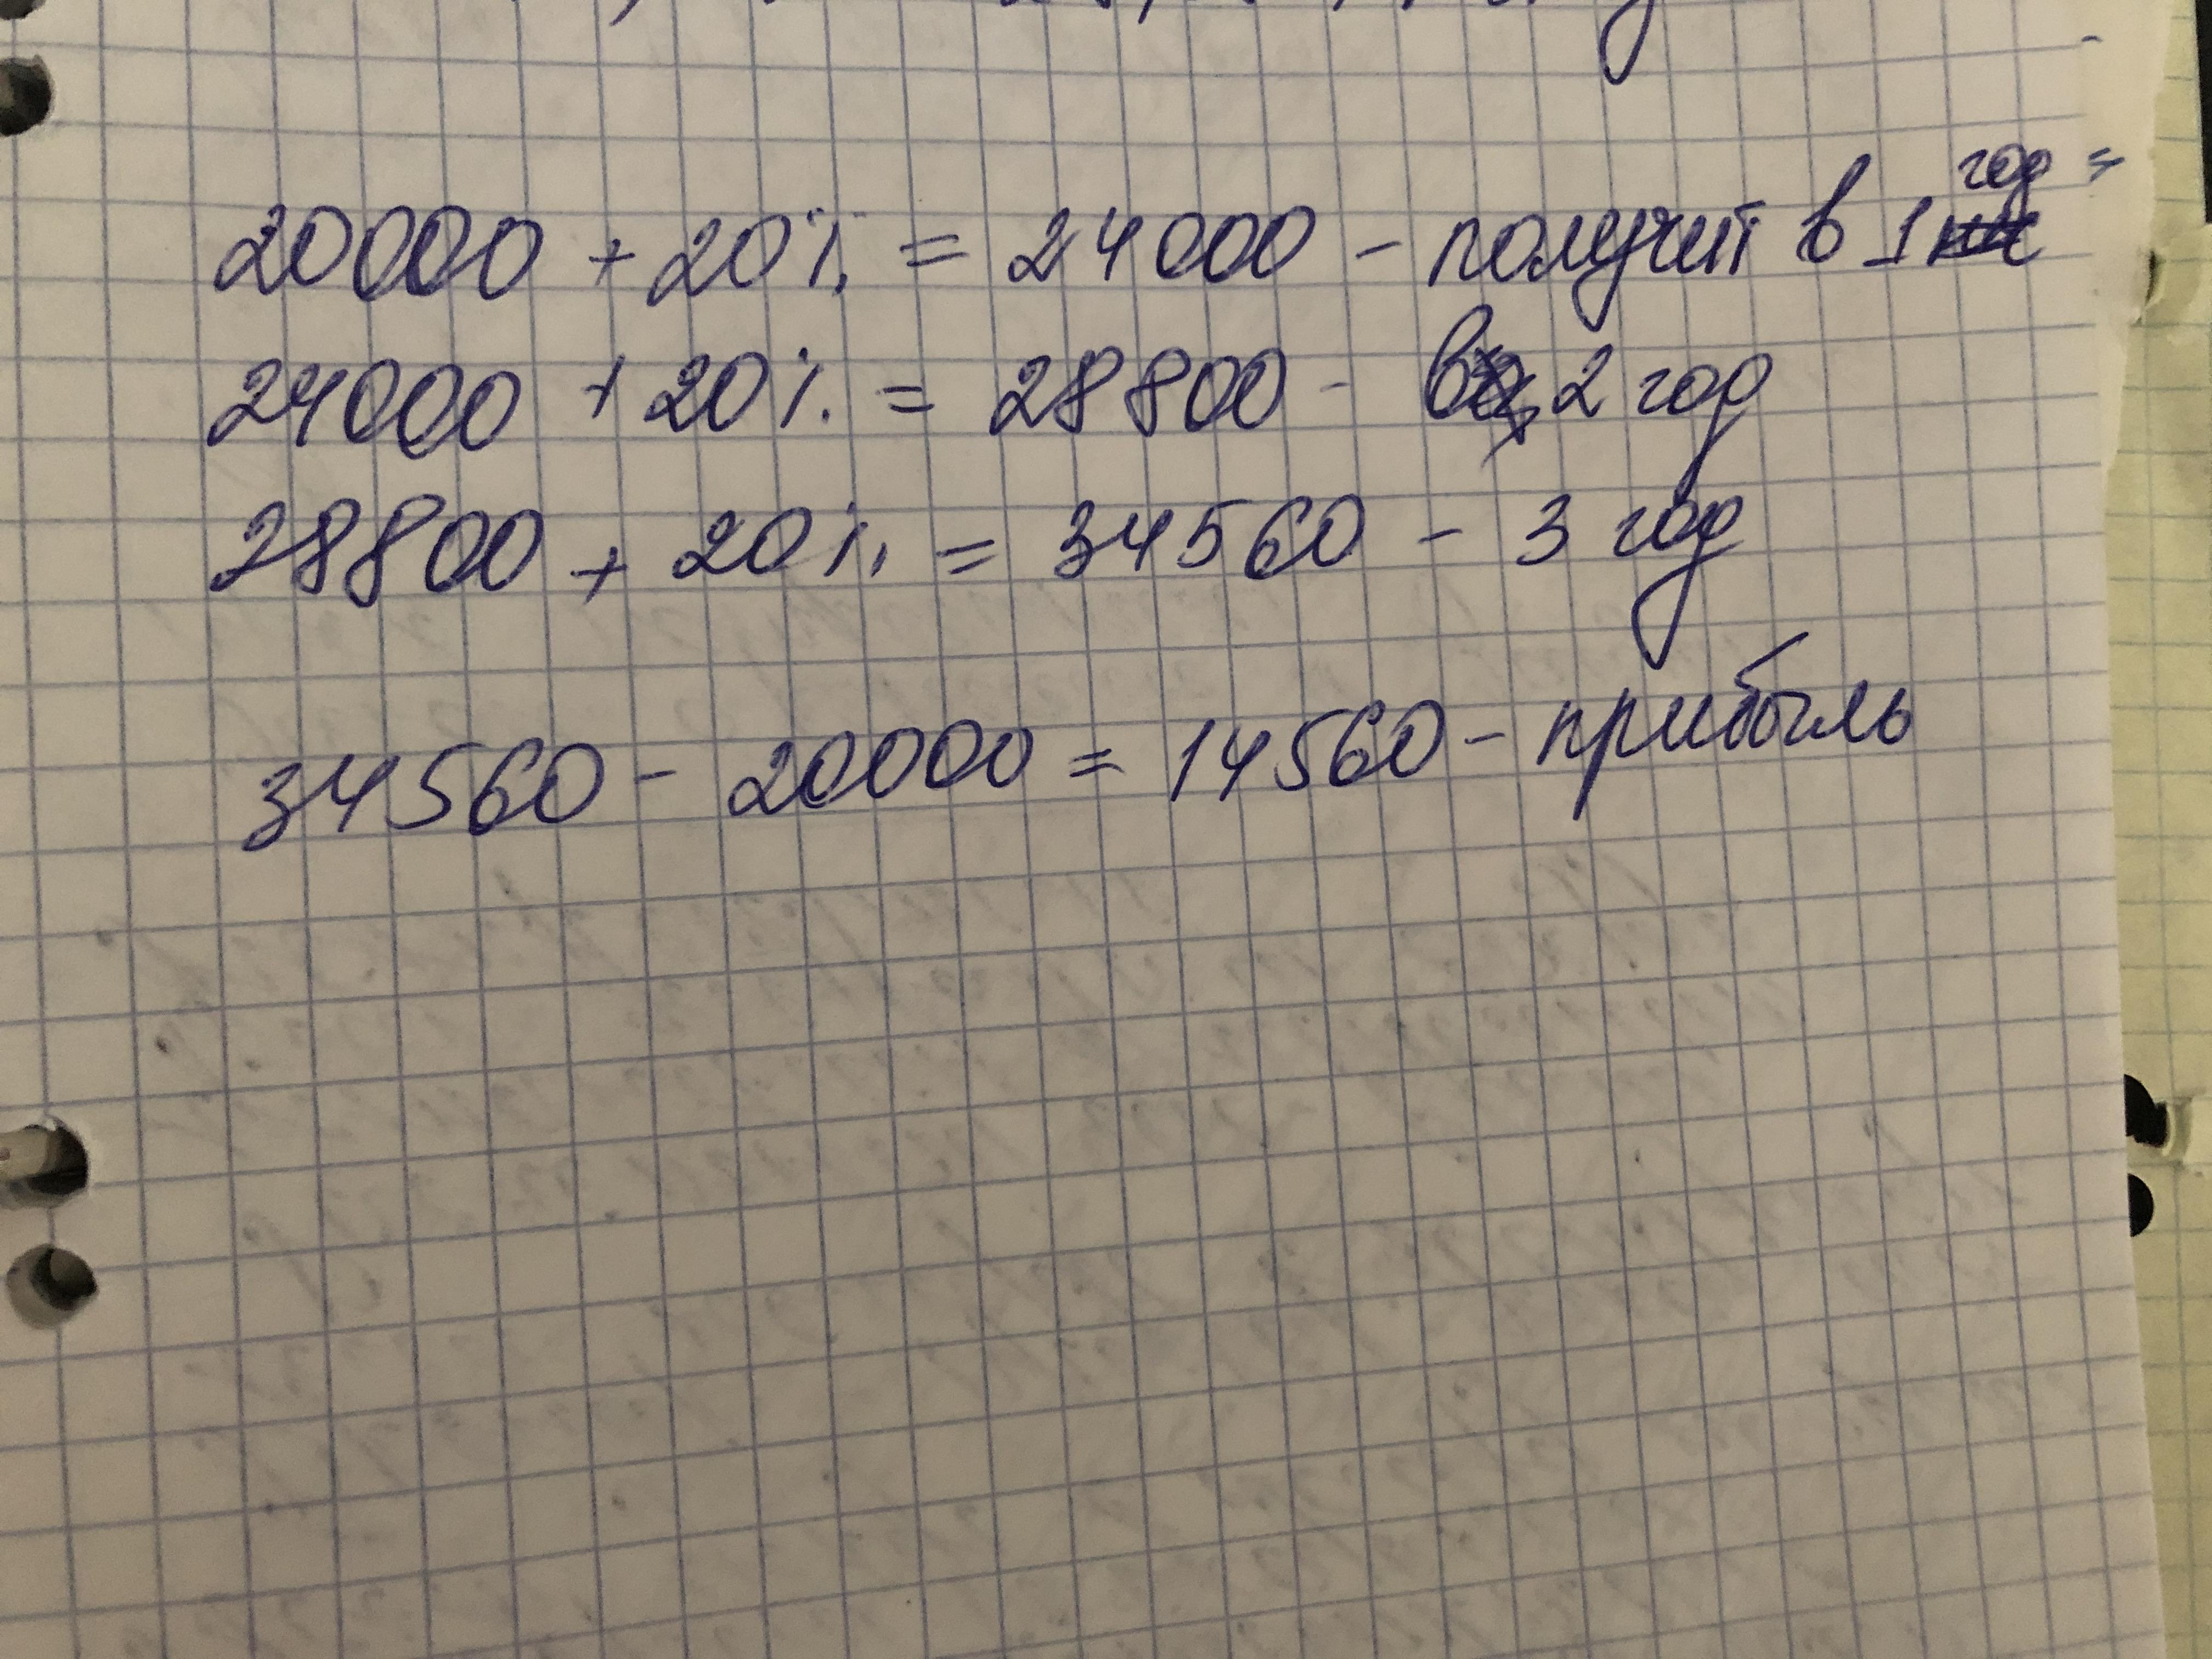 20000 + 20% = 24000 - получит в 1 год =
24000 + 20% = 28800 - в 2 год
28800 + 20% = 34560 - 3 год
34560 - 20000 = 14560 - прибыль